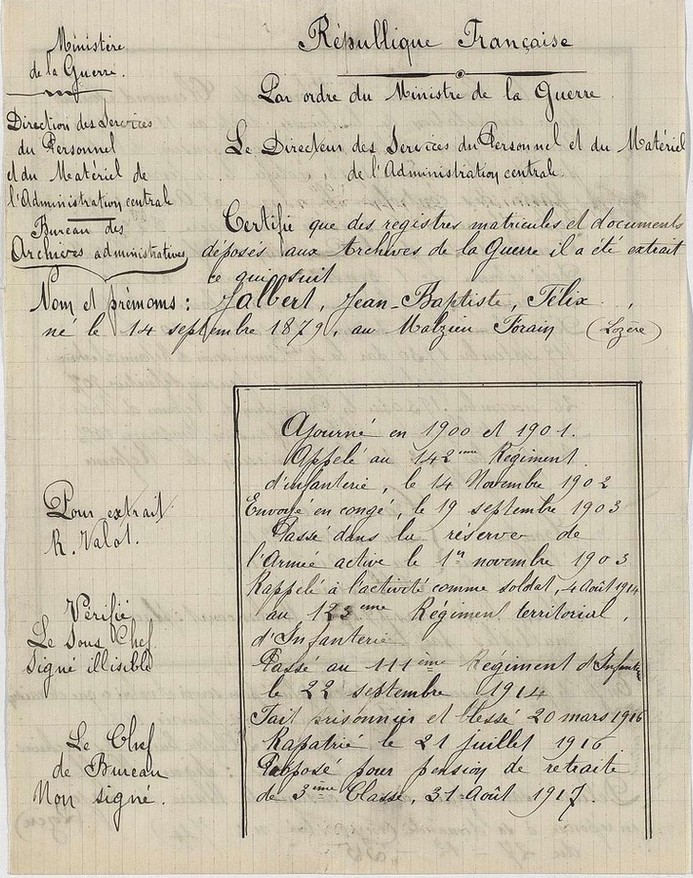 Ministère
de la Guerre.
République Française
Par ordre du Ministre de la Guerre
Direction des Services
du Personnel
et du Matériel de
l'Administration centrale
Bureau des
Archives administratives
Le Directeur des Services du Personnel et du Matériel
de l'Administration centrale
Certifie que des registres matricules et documents
déposés aux Archives de la Guerre il a été extrait
ce qui suit
Nom et prénoms : Jalbert, Jean-Baptiste, Félix.,
né le 14 septembre 1879, au Malzieu Forain (Lozère)
Ajourné en 1900 et 1901.
Appelé au 142ème Regiment
d'infanterie, le 14 Novembre 1902
Envoyé en congé, le 19 septembre 1903
Passé dans la réserve de
l'Armée active le 1er novembre 1903
Rappelé à l'activité comme soldat, 4 Août 1914
au 123ème Régiment territorial,
d'Infanterie
Passé au 111ème Regiment d'Infanterie
le 22 septembre 1914
Fait prisonnier et blessé 20 mars 1916
Rapatrié le 21 juillet 1916
Proposé pour pension de retraite
de 3ème Classe, 31 Août 1917.
Pour extrait
R. Valot.
Vérifié
Le Sous Chef
Signé illisible
Le Chef
de Bureau
Non signé.